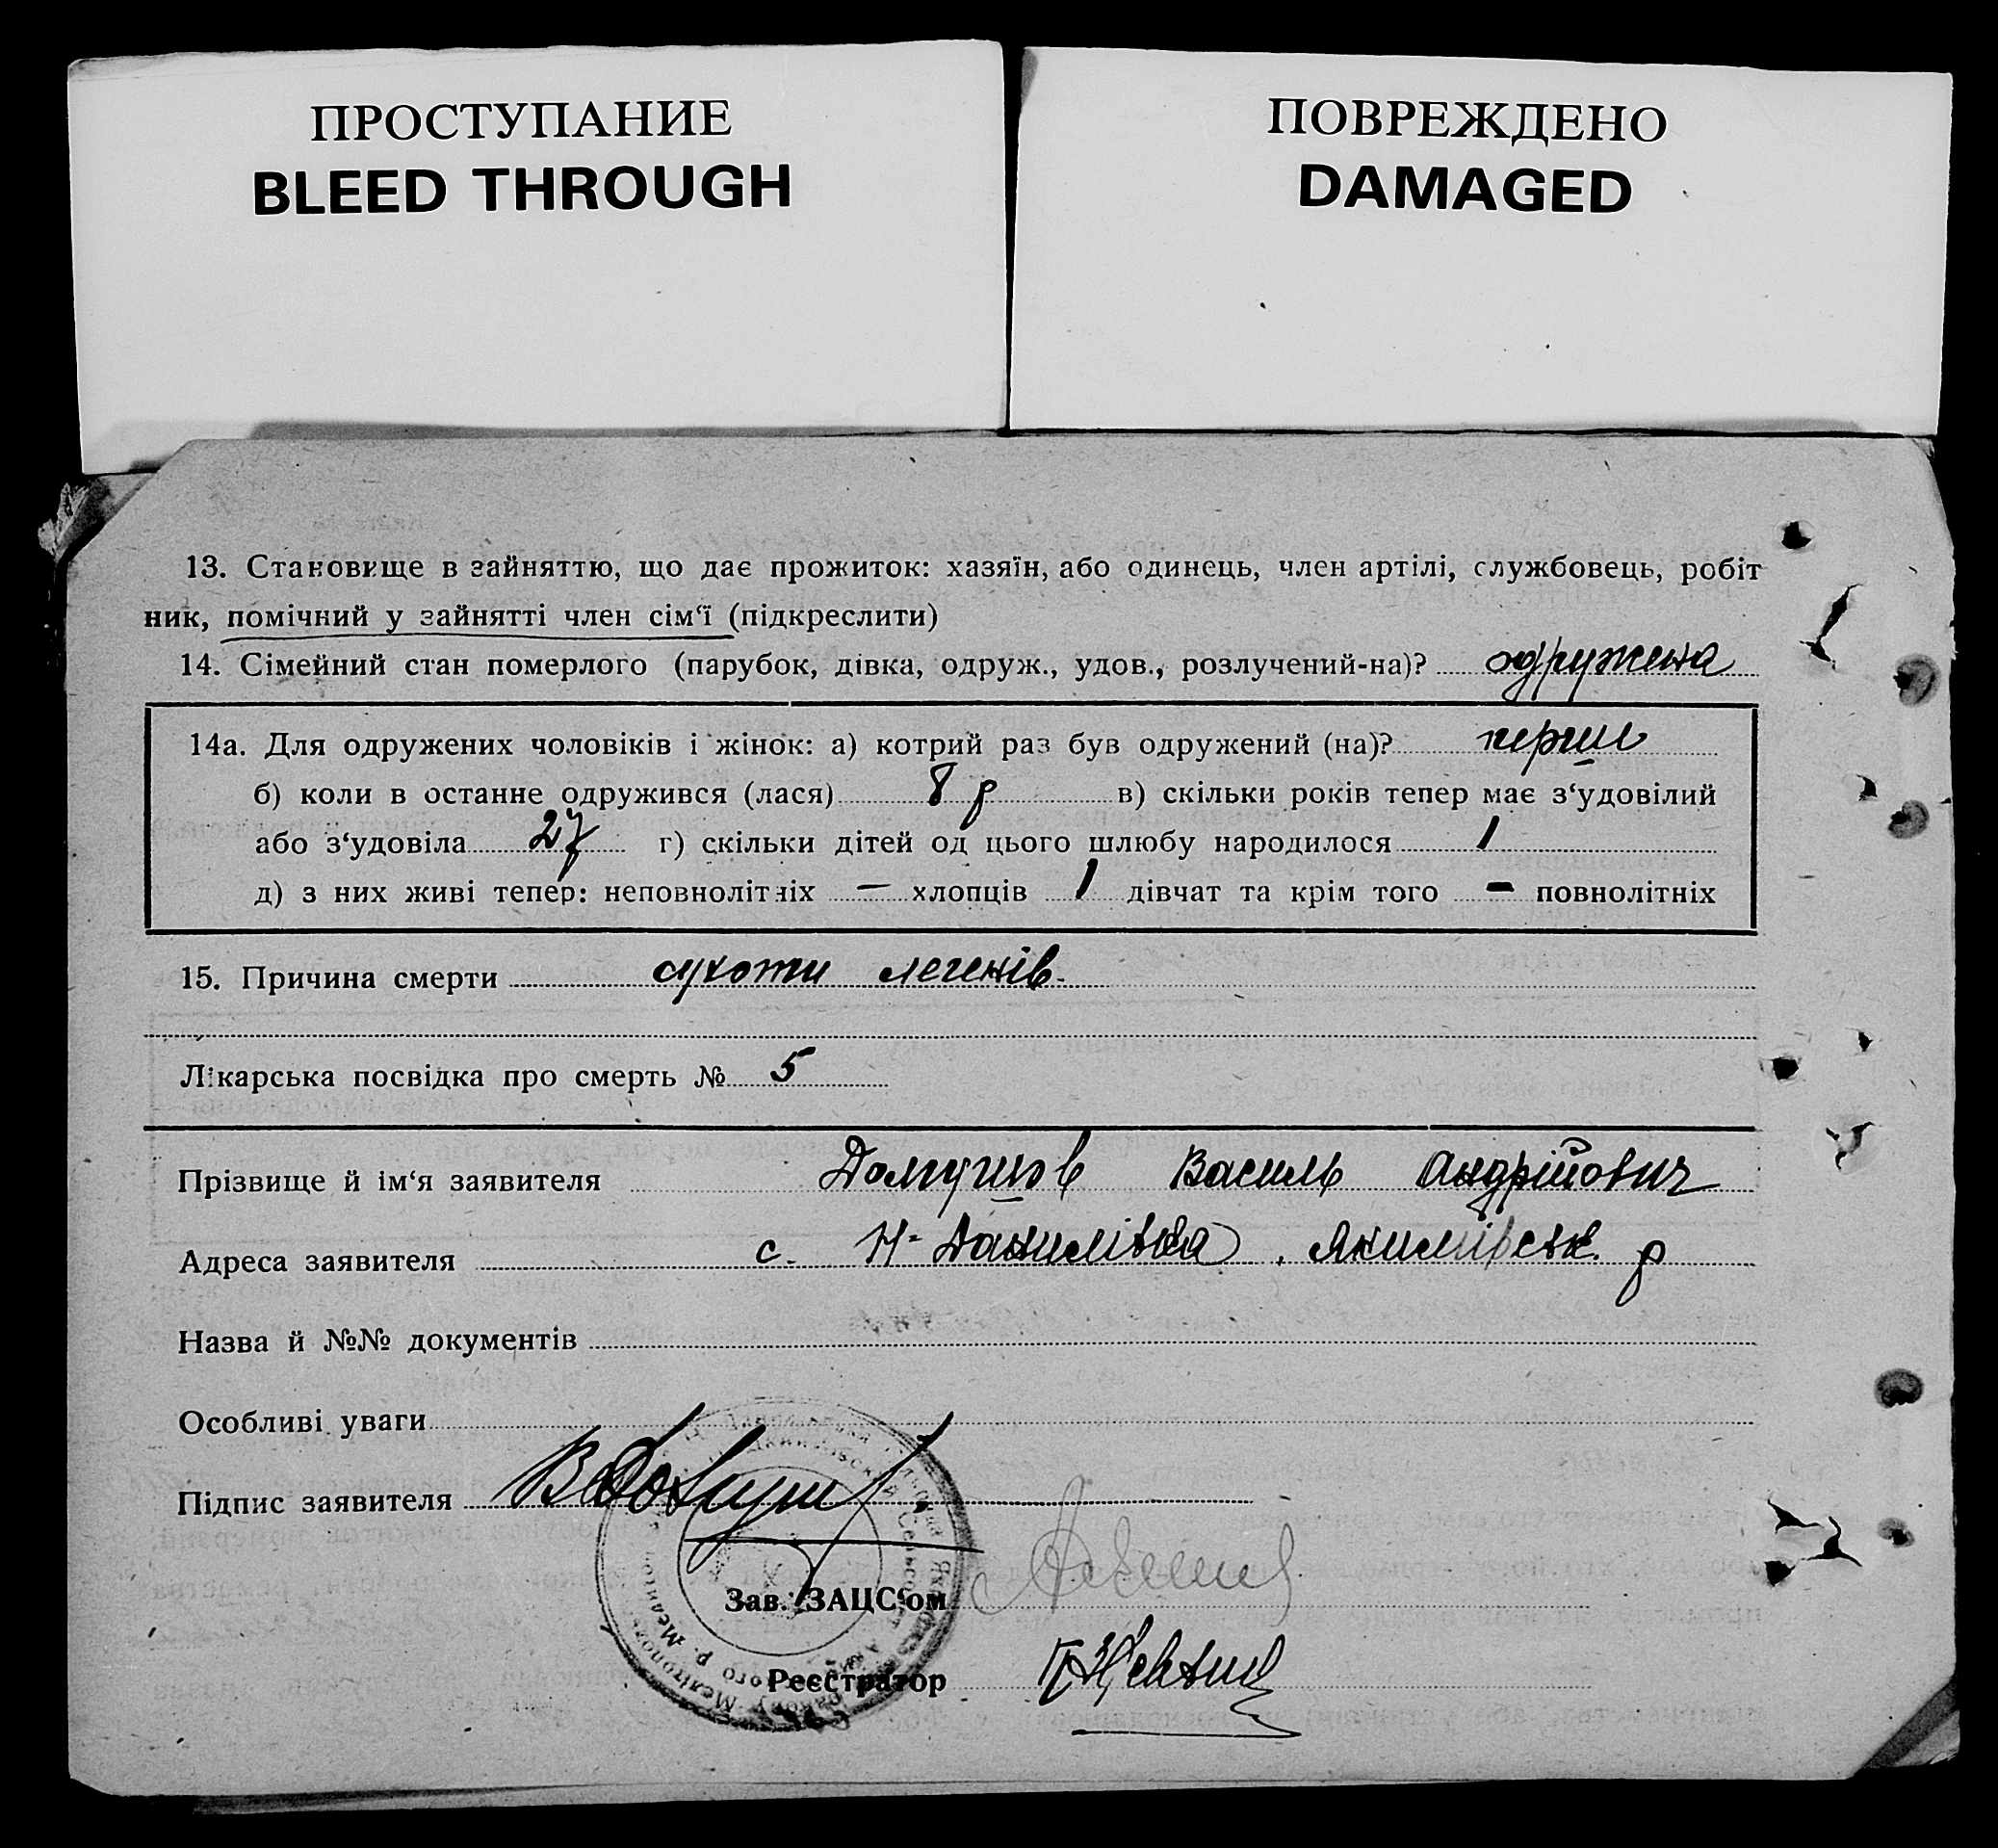 ПРОСТУПАНИЕ
BLEED THROUGH
ПОВРЕЖДЕНО
DAMAGED
13. Становище в зайняттю, що дає прожиток: хазяїн, або одинець, член артілі, службовець, робіт
ник, помічний у зайнятті член сім‘ї (підкреслити)
14. Сімейний стан померлого (парубок, дівка, одруж., удов., розлучений-на)? одружена
14а. Для одружених чоловіків і жінок: а) котрий раз був одружений (на)? перш
б) коли в останне одружився (лася) 8 р в) скільки років тепер має з‘удовілий
або з‘удовіла 27 г) скільки дітей од цього шлюбу народилося 1
д) з них живі тепер: неповнолітніх — хлопців 1 дівчат та крім того — повнолітніх
15. Причина смерти сухоти легенів
Лікарська посвідка про смерть № 5
Прізвище й ім‘я заявителя Василь Андрійович
Адреса заявителя с. Н-Данилівка, р
Назва й №№ документів
Особливі уваги
Підпис заявителя
Зав. ЗАЦС‘ом
Реєстратор